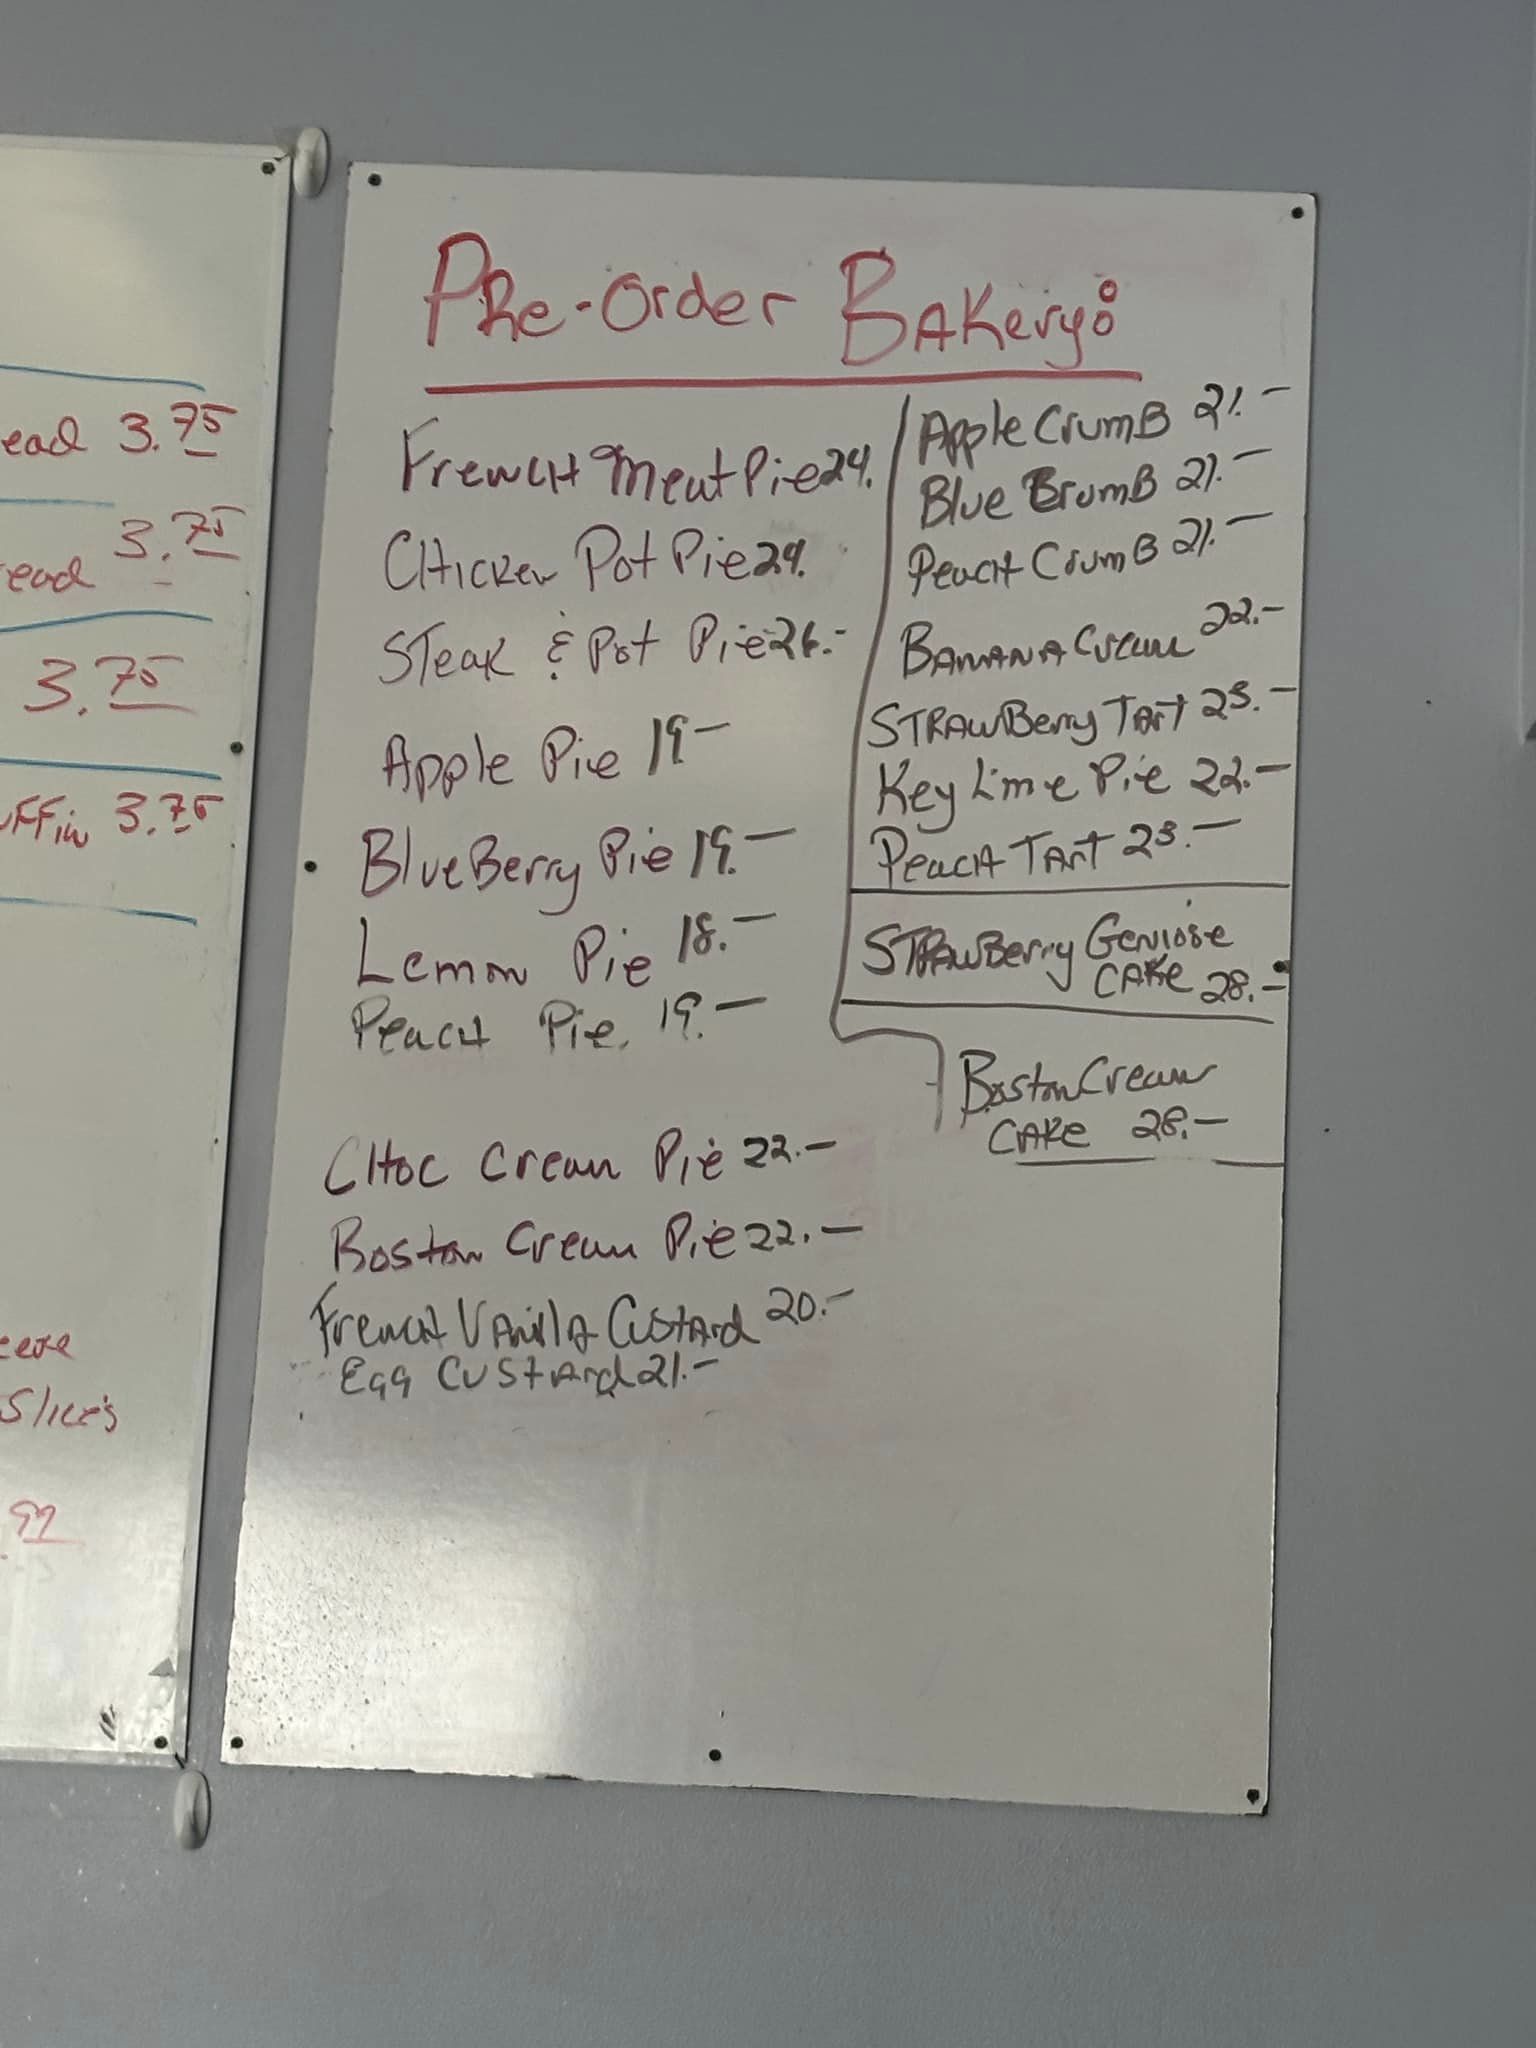 ead 3.75
ead 3.75
3.75
uffin 3.75
Slices
.92
Pre-Order Bakery:
French Meat Pie 24.
Chicken Pot Pie 24.
Steak & Pot Pie 26.-
Apple Pie 19-
BlueBerry Pie 19.-
Lemon Pie 18.-
Peach Pie. 19.-
Choc Cream Pie 22.-
Boston Cream Pie 22.-
French Vanilla Custard 20.-
Egg Custard 21.-
Apple CrumB 21.-
Blue CrumB 21.-
Peach CrumB 21.-
Banana Cream 22.-
StrawBerry Tart 23.-
Key Lime Pie 22.-
Peach Tart 23.-
StrawBerry Geniose
Cake 28.-
Boston Cream
Cake 28.-